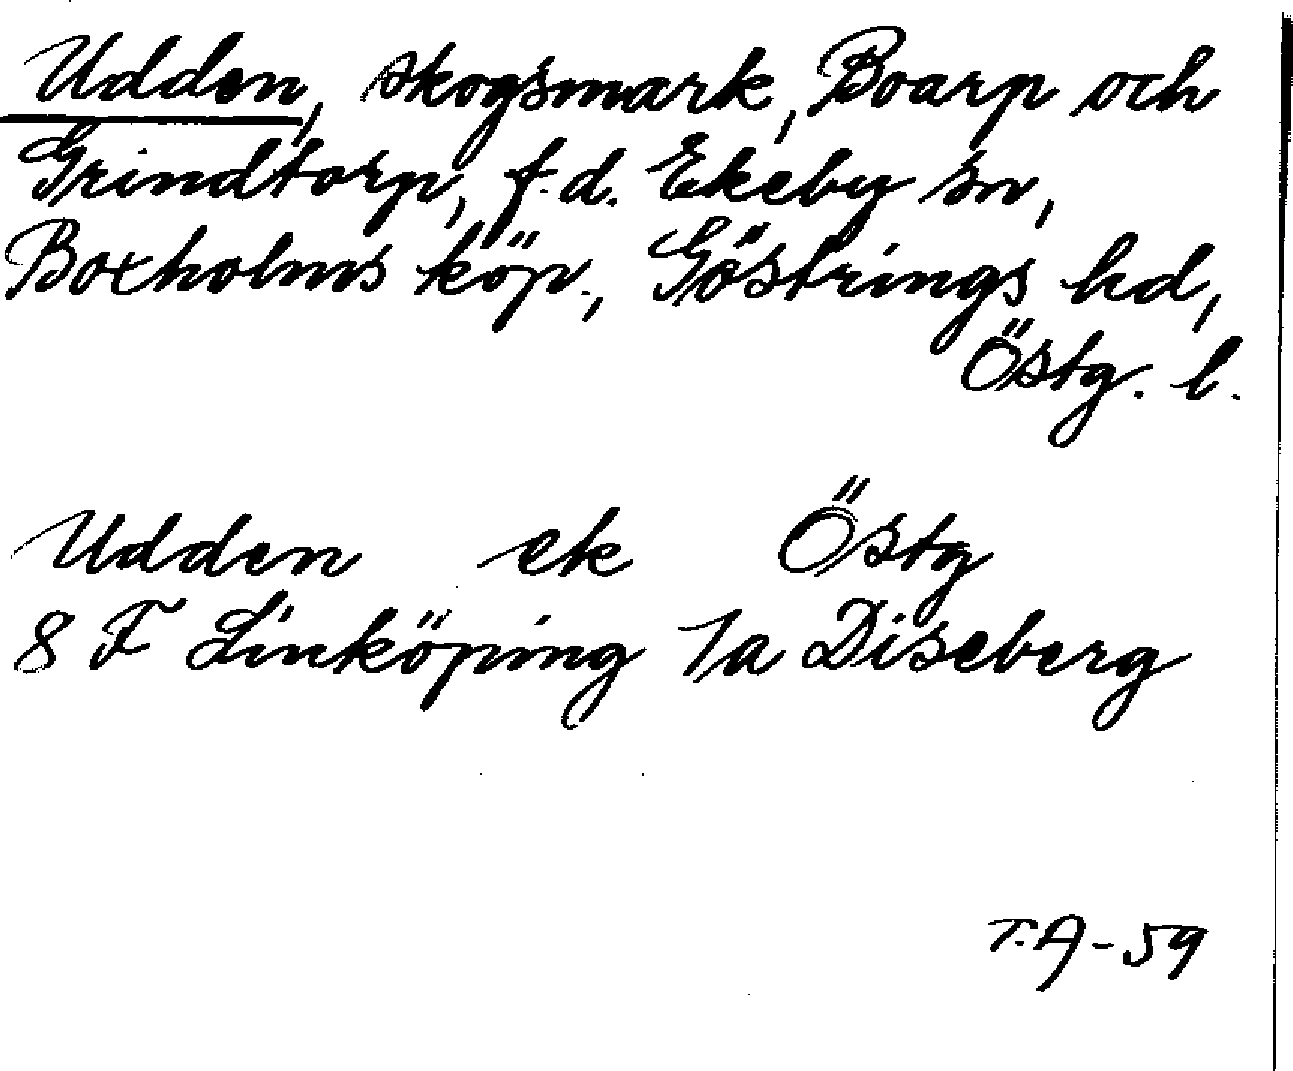 Udden, skogsmark, Boarp och
Grindtorp, f.d. Ekeby sn,
Boxholms köp., Göstrings hd,
Östg. l.
Udden ek Östg
8 F Linköping 1a Diseberg
T.A-59